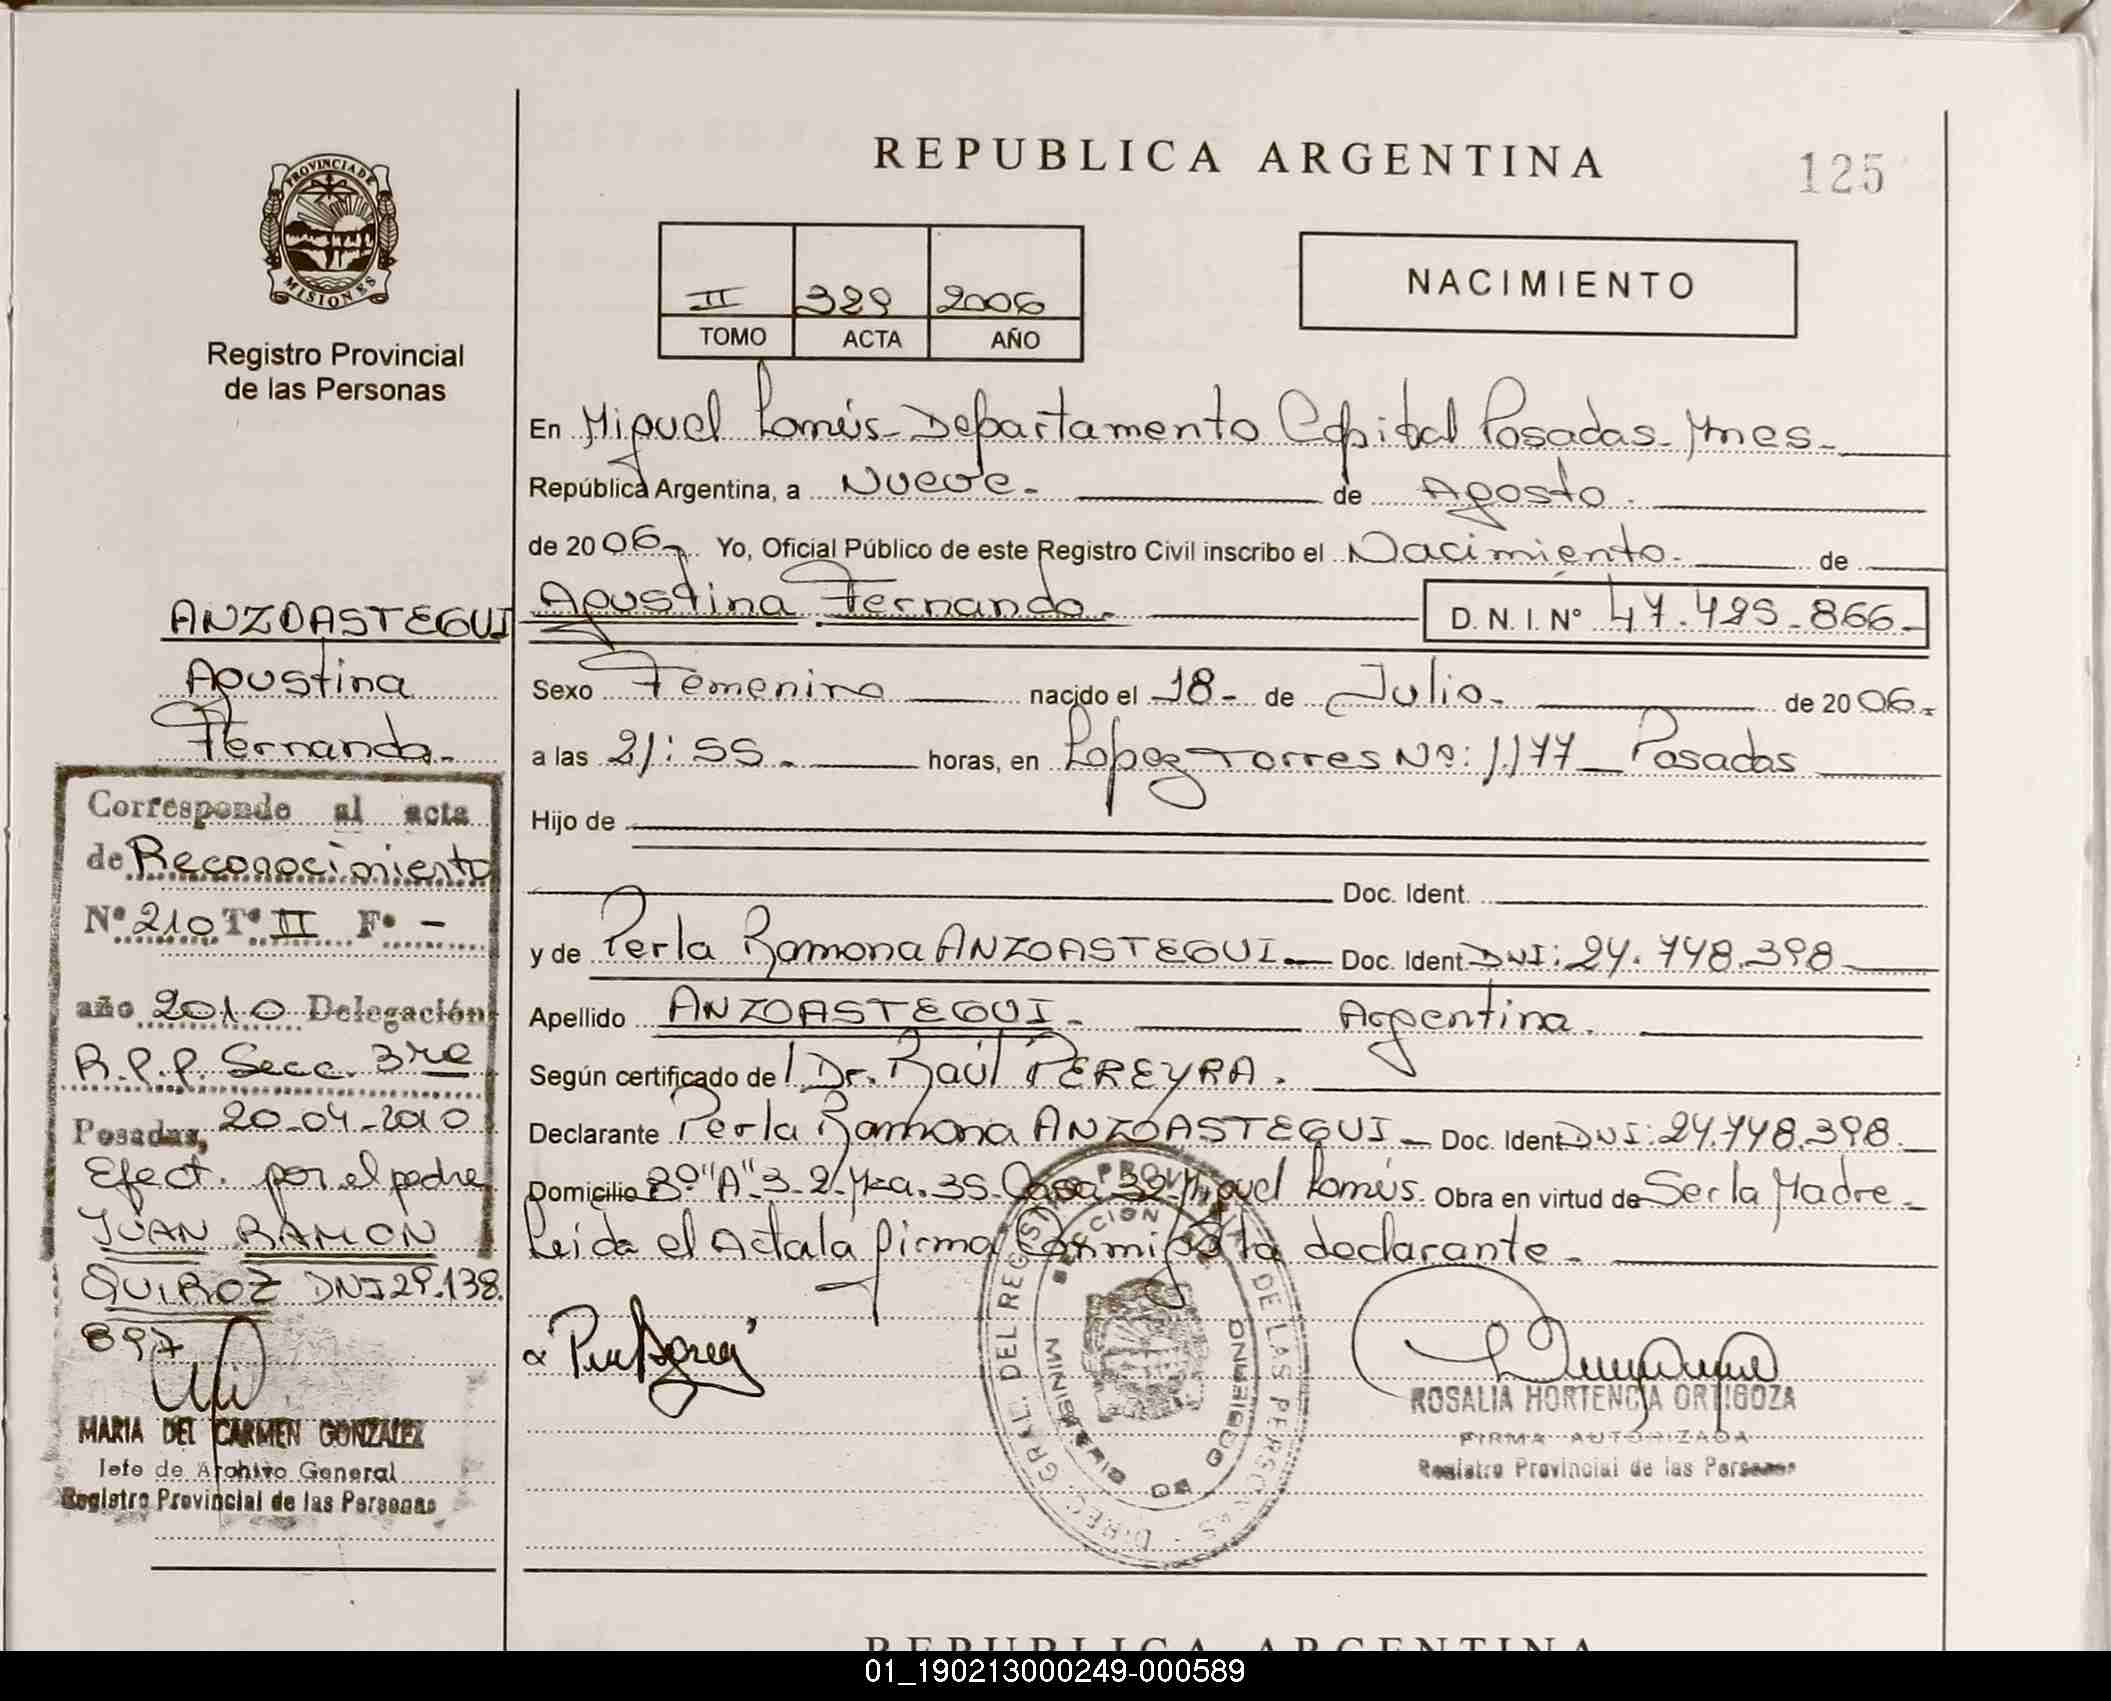 REPUBLICA ARGENTINA
125
PROVINCIA DE
MISIONES
Registro Provincial
de las Personas
II 329 2006
TOMO ACTA AÑO
NACIMIENTO
En Miguel Lanús-Departamento Capital Posadas-Mnes-
República Argentina, a Nueve- de Agosto.
de 2006, Yo, Oficial Público de este Registro Civil inscribo el Nacimiento- de
Agustina Fernanda. D. N. I. Nº 47.425.866-
Sexo Femenino nacido el 18- de Julio- de 2006.
a las 21:55- horas, en Lopez Torres Nº: 1.177_ Posadas
Hijo de
Doc. Ident.
y de Perla Ramona ANZOASTEGUI Doc. Ident. DNI: 24.748.398
Apellido ANZOASTEGUI- Argentina.
Según certificado de Dr. Raúl PEREYRA.
Declarante Perla Ramona ANZOASTEGUI Doc. Ident. DNI: 24.748.398.
Domicilio Bº "A"-3-2-Mza.35-Casa 32-Miguel Lanús. Obra en virtud de Ser la Madre-
Leida el Acta la firma Conmigo la declarante-
ROSALIA HORTENCIA ORTIGOZA
FIRMA AUTORIZADA
Registro Provincial de las Personas
DIREC. GRAL. DEL REGISTRO PROVINCIAL DE LAS PERSONAS
SECCION
MINISTERIO DE GOBIERNO
ANZOASTEGUI
Agustina
Fernanda.-
Corresponde al acta
de Reconocimiento
Nº 210 Tº II Fº -
año 2010 Delegación
R.P.P. Secc. 3ra
Posadas, 20-04-2010
Efect. por el padre
JUAN RAMON
QUIROZ DNI 29.138.
897
MARIA DEL CARMEN GONZALEZ
Jefe de Archivo General
Registro Provincial de las Personas
REPUBLICA ARGENTINA
01_190213000249-000589